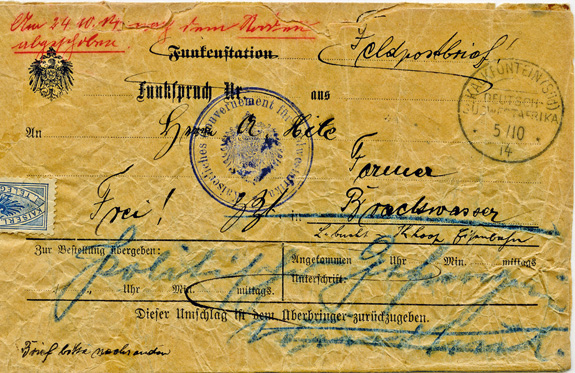 Am 24.10.14. nach dem Norden
abgeschoben.
Funkenstation
Feldpostbrief!
Funkspruch Nr. aus
KALKFONTEIN (SÜD)
DEUTSCH-
SÜDWESTAFRIKA
5/10
14
Kaiserliches Gouvernement für Südwestafrika
An Herrn A Hile
Farmer
Frei! Brackwasser
Eisenbahn
KAISERL
TELEG
Zur Bestellung übergeben:
Angekommen Uhr Min. mittags
Unterschrift:
Uhr Min. mittags.
Politisch
Dieser Umschlag ist dem Überbringer zurückzugeben.
Brief bitte nachsenden